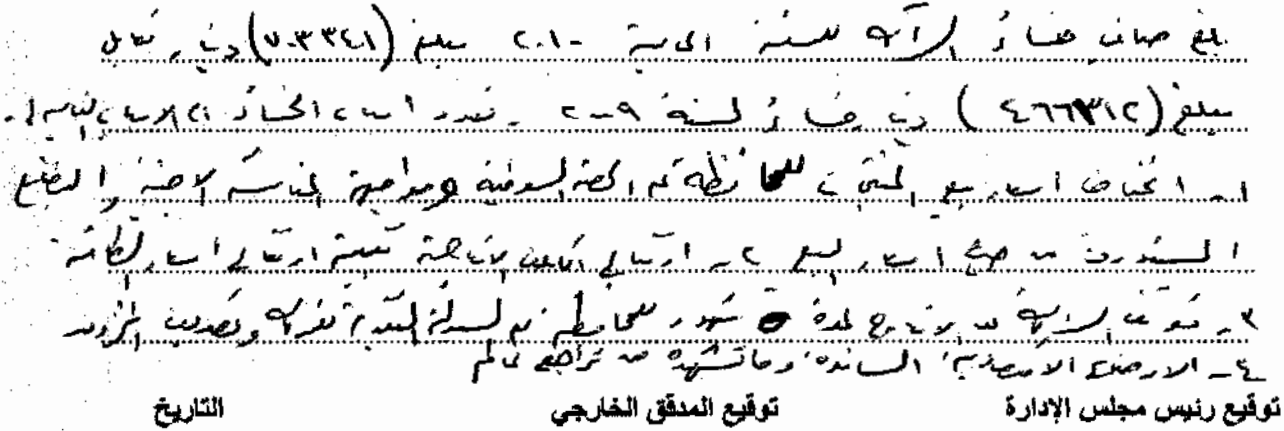 بلغ صافي خسائر الشركة للسنة المالية ٢٠١٠ مبلغ (٧٠٣٣٤١) دينار مقابل
مبلغ (٤٦٦٣١٢) دينار خسائر لسنة ٢٠٠٩ الخسائر الى الاسباب التالية
١- انخفاض اسعار بيع للمحافظة على الحصة السوقية ومواجهة المنافسة
المستوردة اسعار البيع ٢- ارتفاع نتيجة ارتفاع اسعار الطاقة
٣- توقف الشركة عن الانتاج لمدة شهور للمحافظة على السيولة النقدية للشركة
٤- الاوضاع الاقتصادية السائدة وما تشهده من تراجع
توقيع رئيس مجلس الإدارة توقيع المدقق الخارجي التاريخ